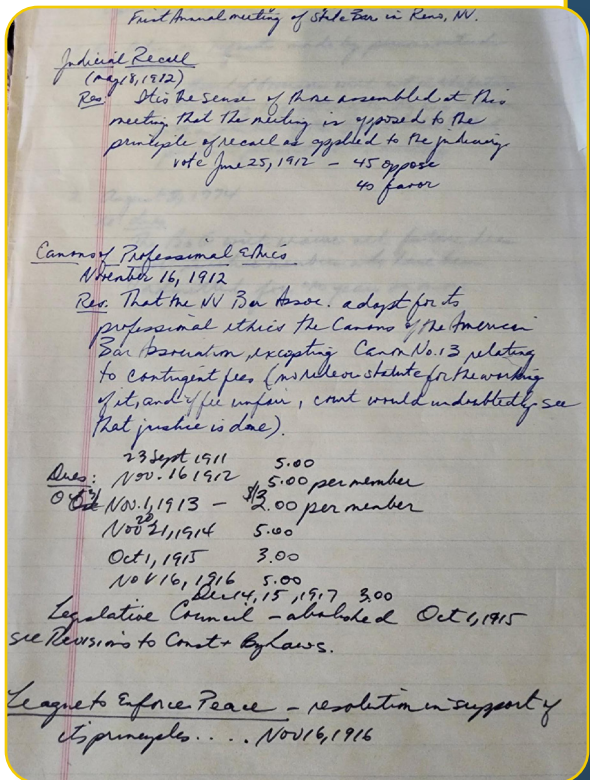 First Annual meeting of State Bar in Reno, NV.
Judicial Recall
(May 18, 1912)
Res. It is the sense of those assembled at this
meeting that the meeting is opposed to the
principle of recall as applied to the judiciary
vote June 25, 1912 - 45 oppose
40 favor
Canons of Professional Ethics
November 16, 1912
Res. That the NV Bar Assoc. adopt for its
professional ethics the Canons of the American
Bar Association, excepting Canon No. 13 relating
to contingent fees (no rule or statute for the working
of it, and if fee unfair, court would undoubtedly see
that justice is done).
23 Sept 1911 5.00
Dues: Nov. 16 1912 5.00 per member
Nov. 1, 1913 - 2.00 per member
Nov 21, 1914 5.00
Oct 1, 1915 3.00
Nov 16, 1916 5.00
Dec 14, 15, 1917 3.00
Legislative Council - abolished Oct 1, 1915
see Revisions to Const + By Laws.
League to Enforce Peace - resolution in support of
its principles . . . . Nov 16, 1916